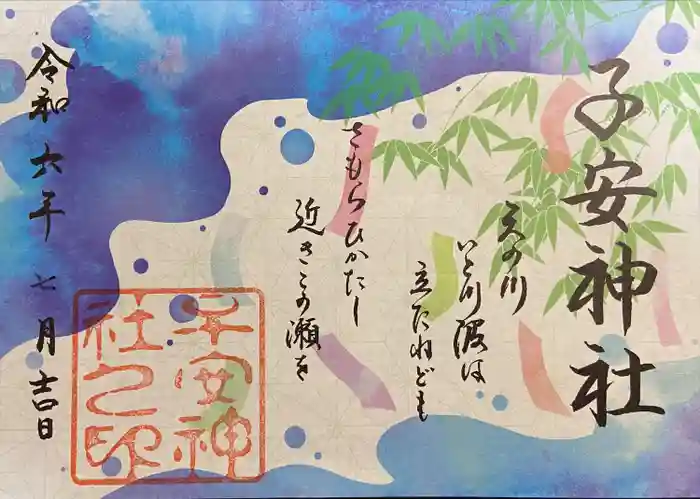 子安神社
天の川
いと川波は
立たねども
さもらひかたし
近きこの瀬を
令和六年七月吉日
子安神
社之印